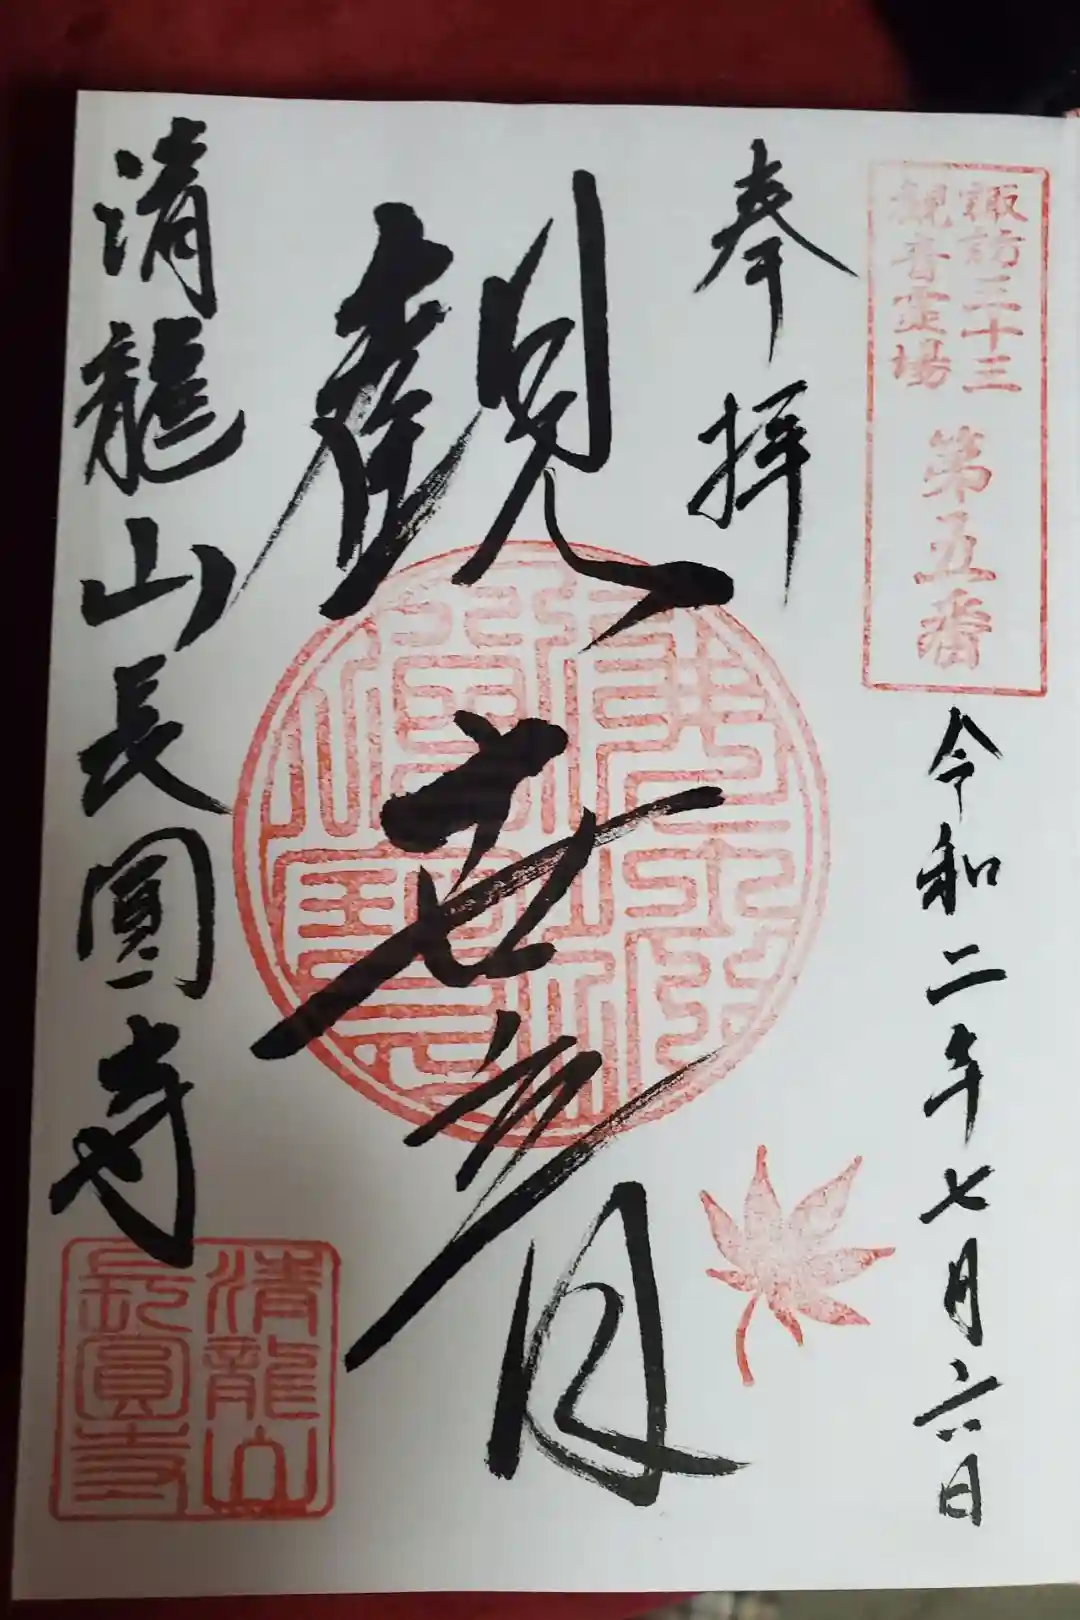 諏訪三十三
観音霊場
第五番
令和二年七月六日
奉拝
観世音
清龍山長圓寺
清龍山
長圓寺